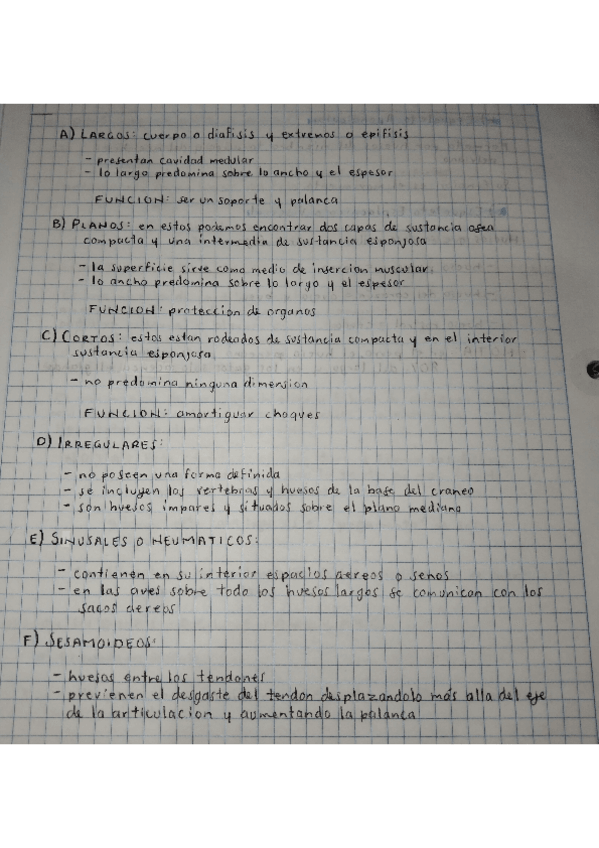 A) LARGOS: cuerpo o diafisis y extremos o epifisis
- presentan cavidad medular
- lo largo predomina sobre lo ancho y el espesor
FUNCION: ser un soporte y palanca
B) PLANOS: en estos podemos encontrar dos capas de sustancia osea
compacta y una intermedia de sustancia esponjosa
- la superficie sirve como medio de insercion muscular
- lo ancho predomina sobre lo largo y el espesor
FUNCION: proteccion de organos
C) CORTOS: estos estan rodeados de sustancia compacta y en el interior
sustancia esponjosa
- no predomina ninguna dimension
FUNCION: amortiguar choques
D) IRREGULARES:
- no poseen una forma definida
- se incluyen las vertebras y huesos de la base del craneo
- son huesos impares y situados sobre el plano mediano
E) SINUSALES O NEUMATICOS:
- contienen en su interior espacios aereos o senos
- en las aves sobre todo los huesos largos se comunican con los
sacos aereos
F) SESAMOIDEOS:
- huesos entre los tendones
- previenen el desgaste del tendon desplazandolo más alla del eje
de la articulacion y aumentando la palanca